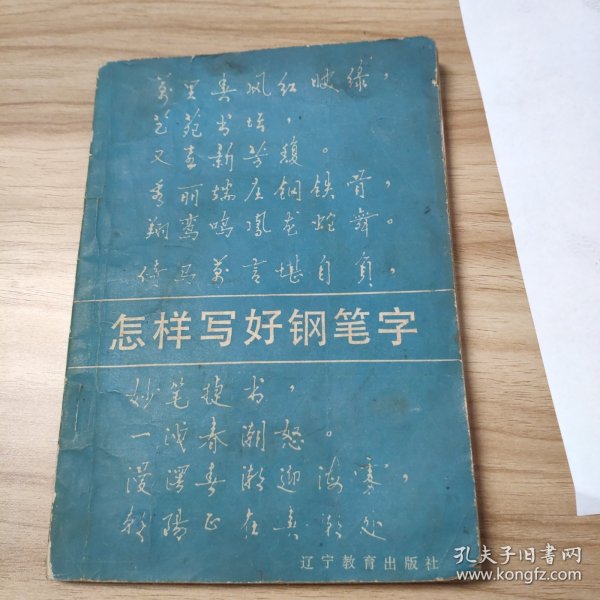 万里春风红映绿，
艺苑书坛，
又直新芳馥。
秀丽端庄钢铁骨，
翔鸾鸣凤龙蛇舞。
倚马万言堪自负，
怎样写好钢笔字
妙笔捷书，
一浅春潮怒。
漫
春潮迎海
朝阳正在
处
辽宁教育出版社
孔夫子旧书网
www.kongfz.com